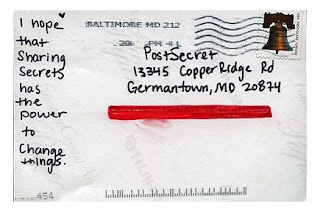 I hope
that
Sharing
Secrets
has
the
power
to
Change
things.
BALTIMORE MD 212
PostSecret
13345 Copper Ridge Rd
Germantown, MD 20874